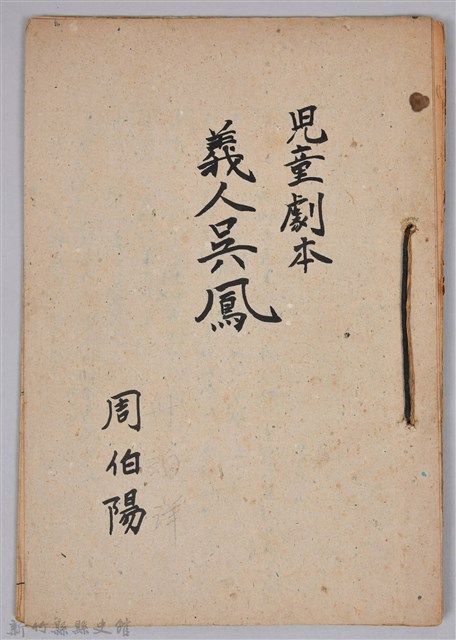 児童劇本
義人吳鳳
周伯陽
新竹縣縣史館